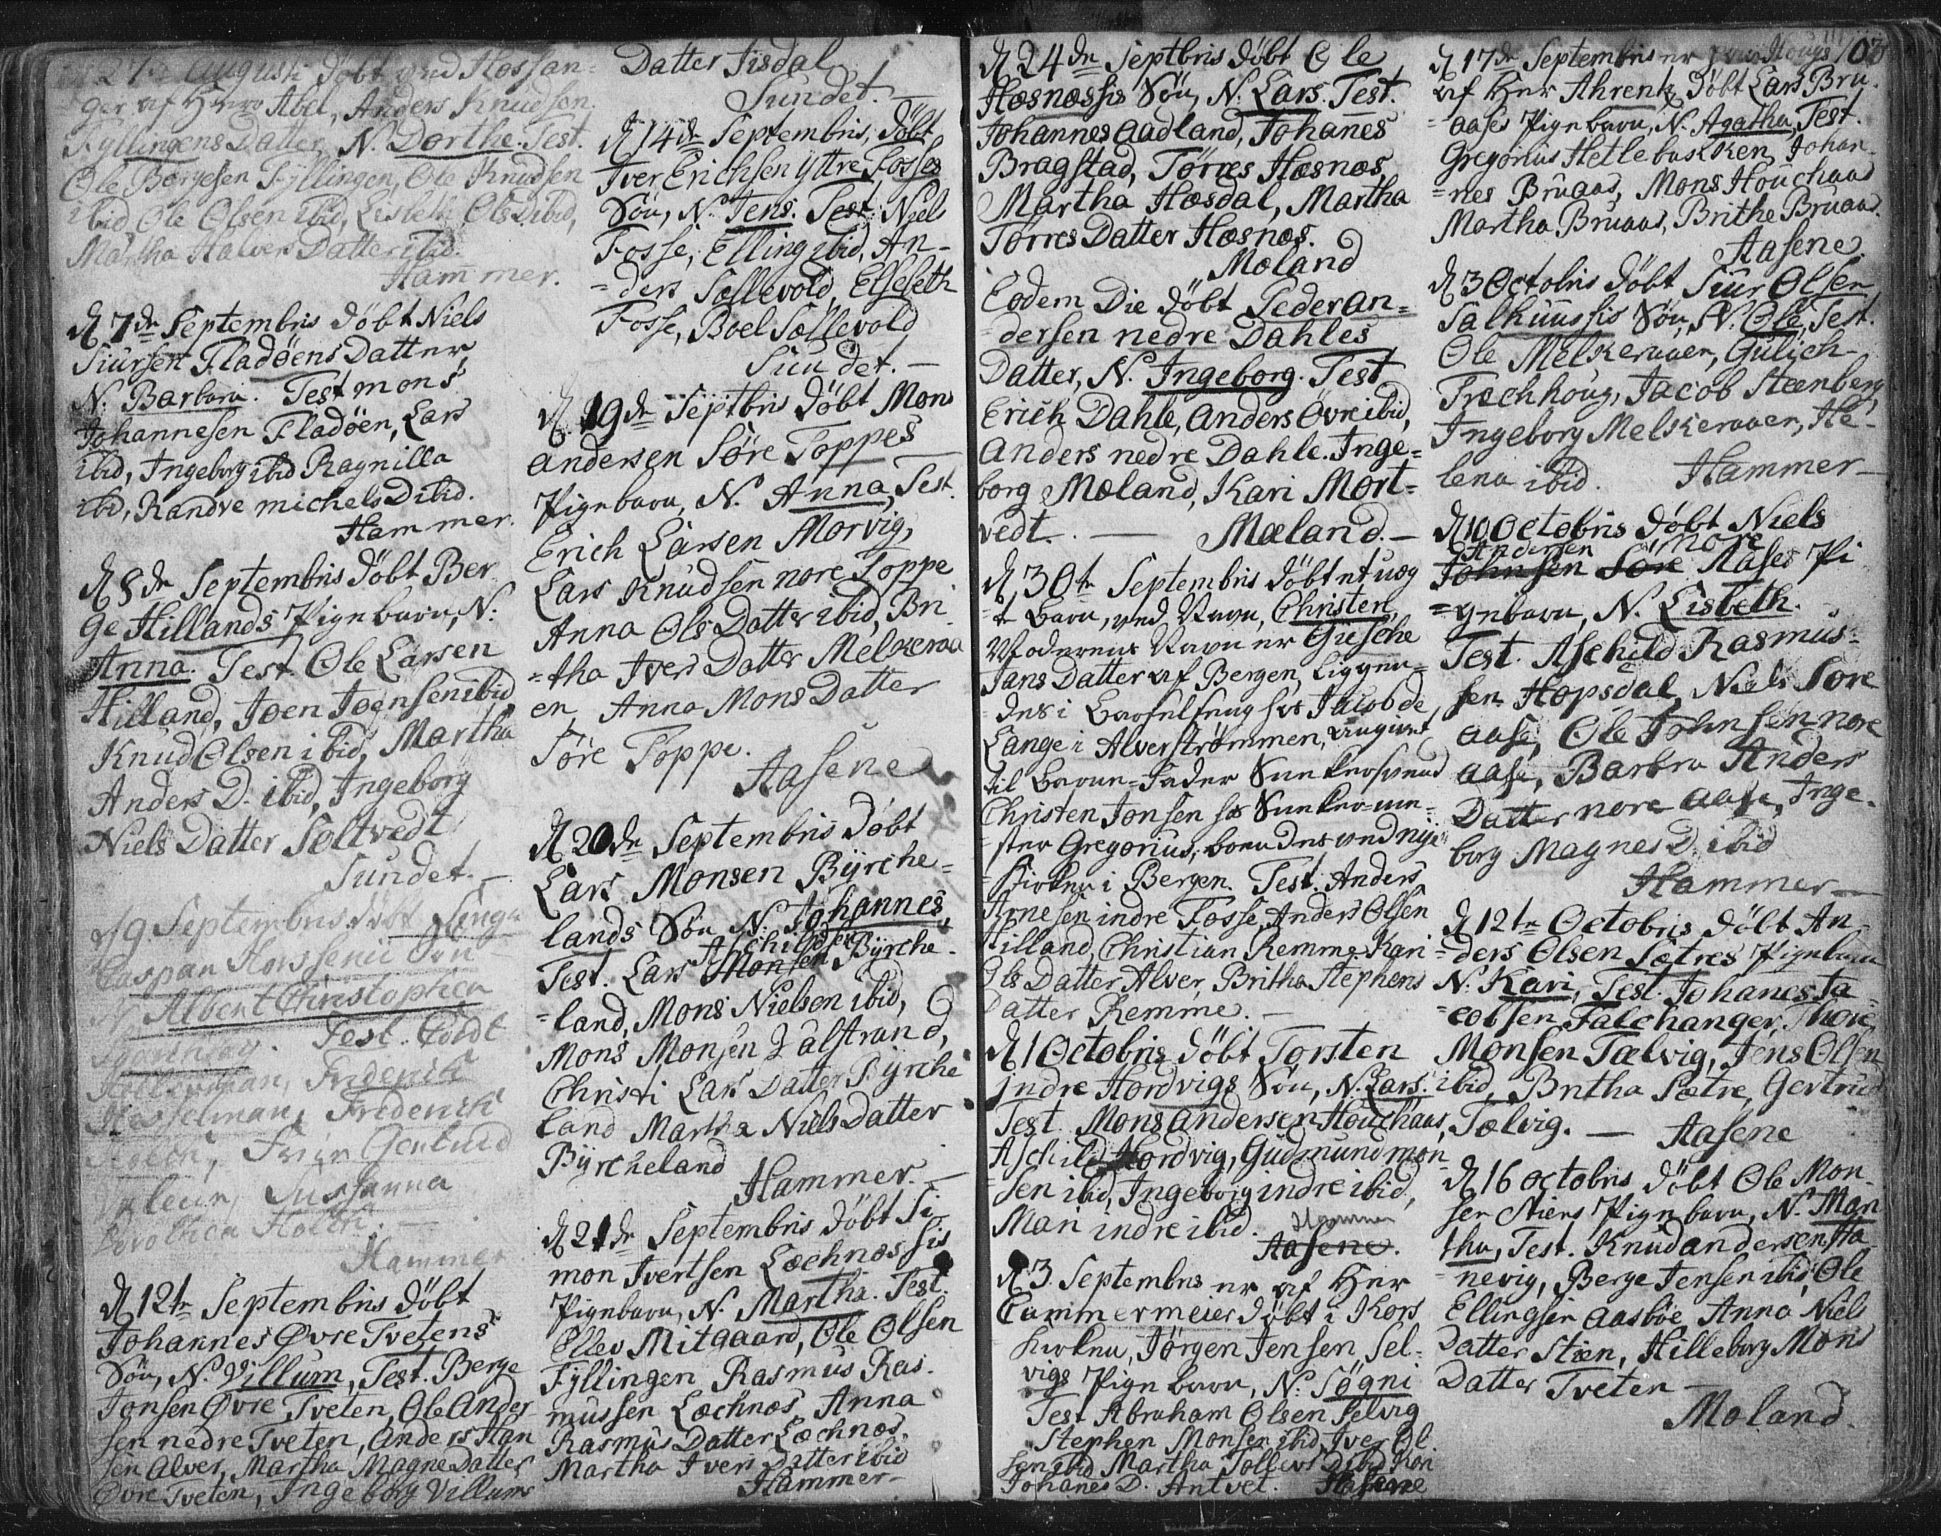 27 August døbt ved Hossan-
ger af Herr Abel, Anders Knudsen
Fyllingens Datter, N. Dorthe. Test.
Ole Børgesen Fyllingen, Ole Knudsen
ibid, Ole Olsen ibid, Lisbeth Ols D ibid,
Martha Halvers Datter ibid.
Hammer.
d 7de Septembris døbt Niels
Siursen Fladøens Datter,
N. Barbara. Test mons
Johannesen Fladøen, Lars
ibid, Ingeborg ibid Ragnilla
ibid, Randve michels D ibid.
Hammer.
d 8de Septembris døbt Ber
ge Hillands Pigebarn, N.
Anna. Test Ole Larsen
Hilland, Joen Joensen ibid
Knud Olsen ibid, Martha
Anders D. ibid, Ingeborg
Niels Datter Sæltvedt
Sundet.
d 9 Septembris døbt
Caspar
N. Albert Christopher
Test.
Hesselman, Frederik
Susanna
Hammer
d 12te Septembris døbt
Johannes Øvre Tvetens
Søn, N. Villum, Test. Berge
Jonsen Øvre Tveten, Ole Ander
sen nedre Tveten, Anders Han
sen Alver, Martha Magne Datter
Øvre Tveten, Ingeborg Villums
Datter Fisdal
Sundet.
d 14de Septembris, døbt
Iver Erichsen Yttre Fosses
Søn, N. Jens. Test, Niel
Fosse, Elling ibid, An-
=ders Sællevold, Elseleth
Fosse, Boel Sællevold
Sundet.
d 19de Septbris døbt Mons
Andersen Søre Toppes
Pigebarn, N. Anna, Test.
Erich Larsen Morvig,
Lars Knudsen nore Toppe
Anna Ols Datter ibid, Bri-
=tha Ivers Datter Melkeraa
en, Anna Mons Datter
Søre Toppe.
Aasene
d 20de Septembris døbt
Lars Monsen Byrche-
lands Søn N. Johannes,
Aschildsen
Test. Lars Monsen Byrche-
=land, Mons Nielsen ibid,
Mons Monsen Talstrand,
Christi Lars Datter Byrche
land Martha Niels Datter
Byrcheland
Hammer.
d 21de Septembris døbt Si
mon Ivertsen Læchnæssis
Pigebarn, N. Martha. Test.
Ellev Mitgaard, Ole Olsen
Fyllingen Rasmus Ras-
mussen Læchnæs Anna
Rasmus Datter Læchnæs.
Martha Ivers Datter ibid
Hammer
d 24de Septbris døbt Ole
Hæsnæssis Søn, N. Lars. Test.
Johannes Aadland, Johanes
Bragstad, Tørres Hæsnæs,
Martha Hæsdal, Martha
Tørres Datter Hæsnæs.
Mæland
Eodem Die døbt Peder An=
dersen nedre Dahles
Datter, N. Ingeborg. Test
Erich Dahle, Anders Øvre ibid,
Anders nedre Dahle. Inge=
borg Mæland, Kari Mort=
vedt.
Mæland.
d 30te Septembris døbt et uæg
=te Barn, ved Navn, Christen,
Moderens Navn er Giesche
Jans Datter af Bergen, liggen=
des i Barselseng hos Jacob de
Lange i Alverstrømmen, angivet
til Barne-Fader Snekersvend
Christen Jonsen hos Snekerme=
ster Gregorius, boendes ved nye
Kirken i Bergen. Test. Anders
Arnesen indre Fosse, Anders Olsen
Hilland, Christian Remme, Kari
Ols Datter Alver, Britha Stephens
Datter Remme.
d 1 Octobris døbt Torsten
indre Hordvigs Søn, N. Lars.
Test. Mons Andersen Houchaas,
Aschild Hordvig, Gudmund Mon
sen ibid, Ingeborg indre ibid,
Mari indre ibid.
Hammer
Aasene.
d 3 Septembris er af Herr
Cammermeier døbt i Kors
Kirken, Jørgen Jensen Sel-
vigs Pigebarn, N. Søgni
Test Abraham Olsen Selvig
Stephen Monsen ibid, Iver Ol-
sen ibid Martha Tollevs D ibid Kari
Johanes D. Antvet. Aasene
103
d 17de Septembris er
af Herr Ahrentz, døbt Lars Bru-
=aases Pigebarn, N. Agatha, Test.
Gregorius Hetlebakken, Johan-
=nes Bruaas, Mons Houchaas
Martha Bruaas, Brithe Bruaas.
Aasene.
d 3 Octobris døbt Siur Olsen
Salhuussis Søn, N. Ole, Test.
Ole Melkeraaen, Gulich
Træchhoug, Jacob Steenberg,
Ingeborg Melkeraaen, He-
lena ibid. Hammer
d 10 Octobris døbt Niels
Andersen nore
Johnsen Søre Aases Pi
=gebarn, N. Lisbeth.
Test. Aschild Rasmus-
sen Hopsdal, Niels Søre
Aase, Ole Johnsen nore
Aase, Barbra Anders
Datter nore Aase, Inge-
borg Magnes D. ibid
Hammer
d 12te Octobris døbt An-
=ders Olsen Sætres Pigebarn
N. Kari, Test. Johanes Ja-
=cobsen Falchanger, Thore
Monsen Tælvig, Jens Olsen
ibid, Britha Sætre, Gertrud
Tælvig. Aasene
d 16 octobris døbt Ole Mon-
sen Stiens Pigebarn, N. Mar
tha, Test. Knud Andersen Ha-
nevig, Berge Jensen ibid, Ole
Ellingsen Aasbøe, Anna Niels
Datter Stien, Hilleborg Mons
Datter Tveten
Mæland.